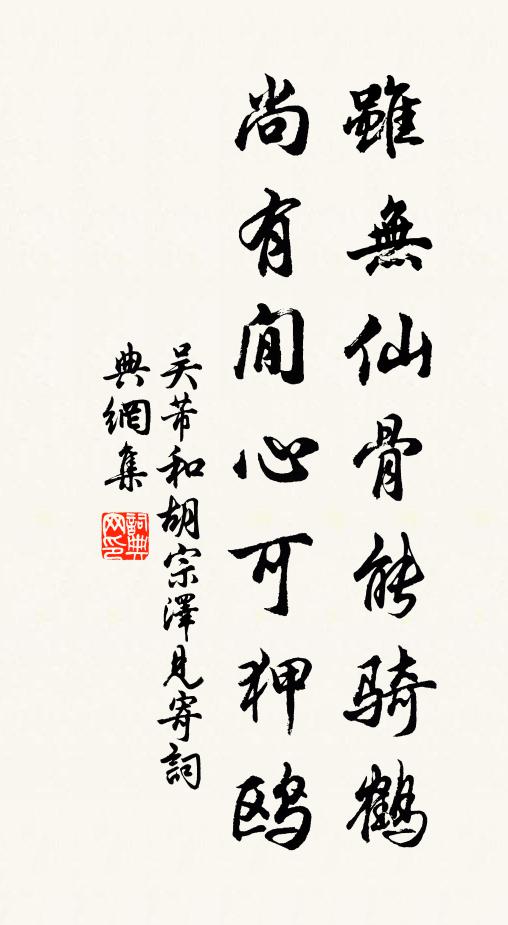 雖無仙骨能騎鶴
尚有閒心可狎鷗
吴芾和胡宗澤見寄詞
典網集
詞典
网印